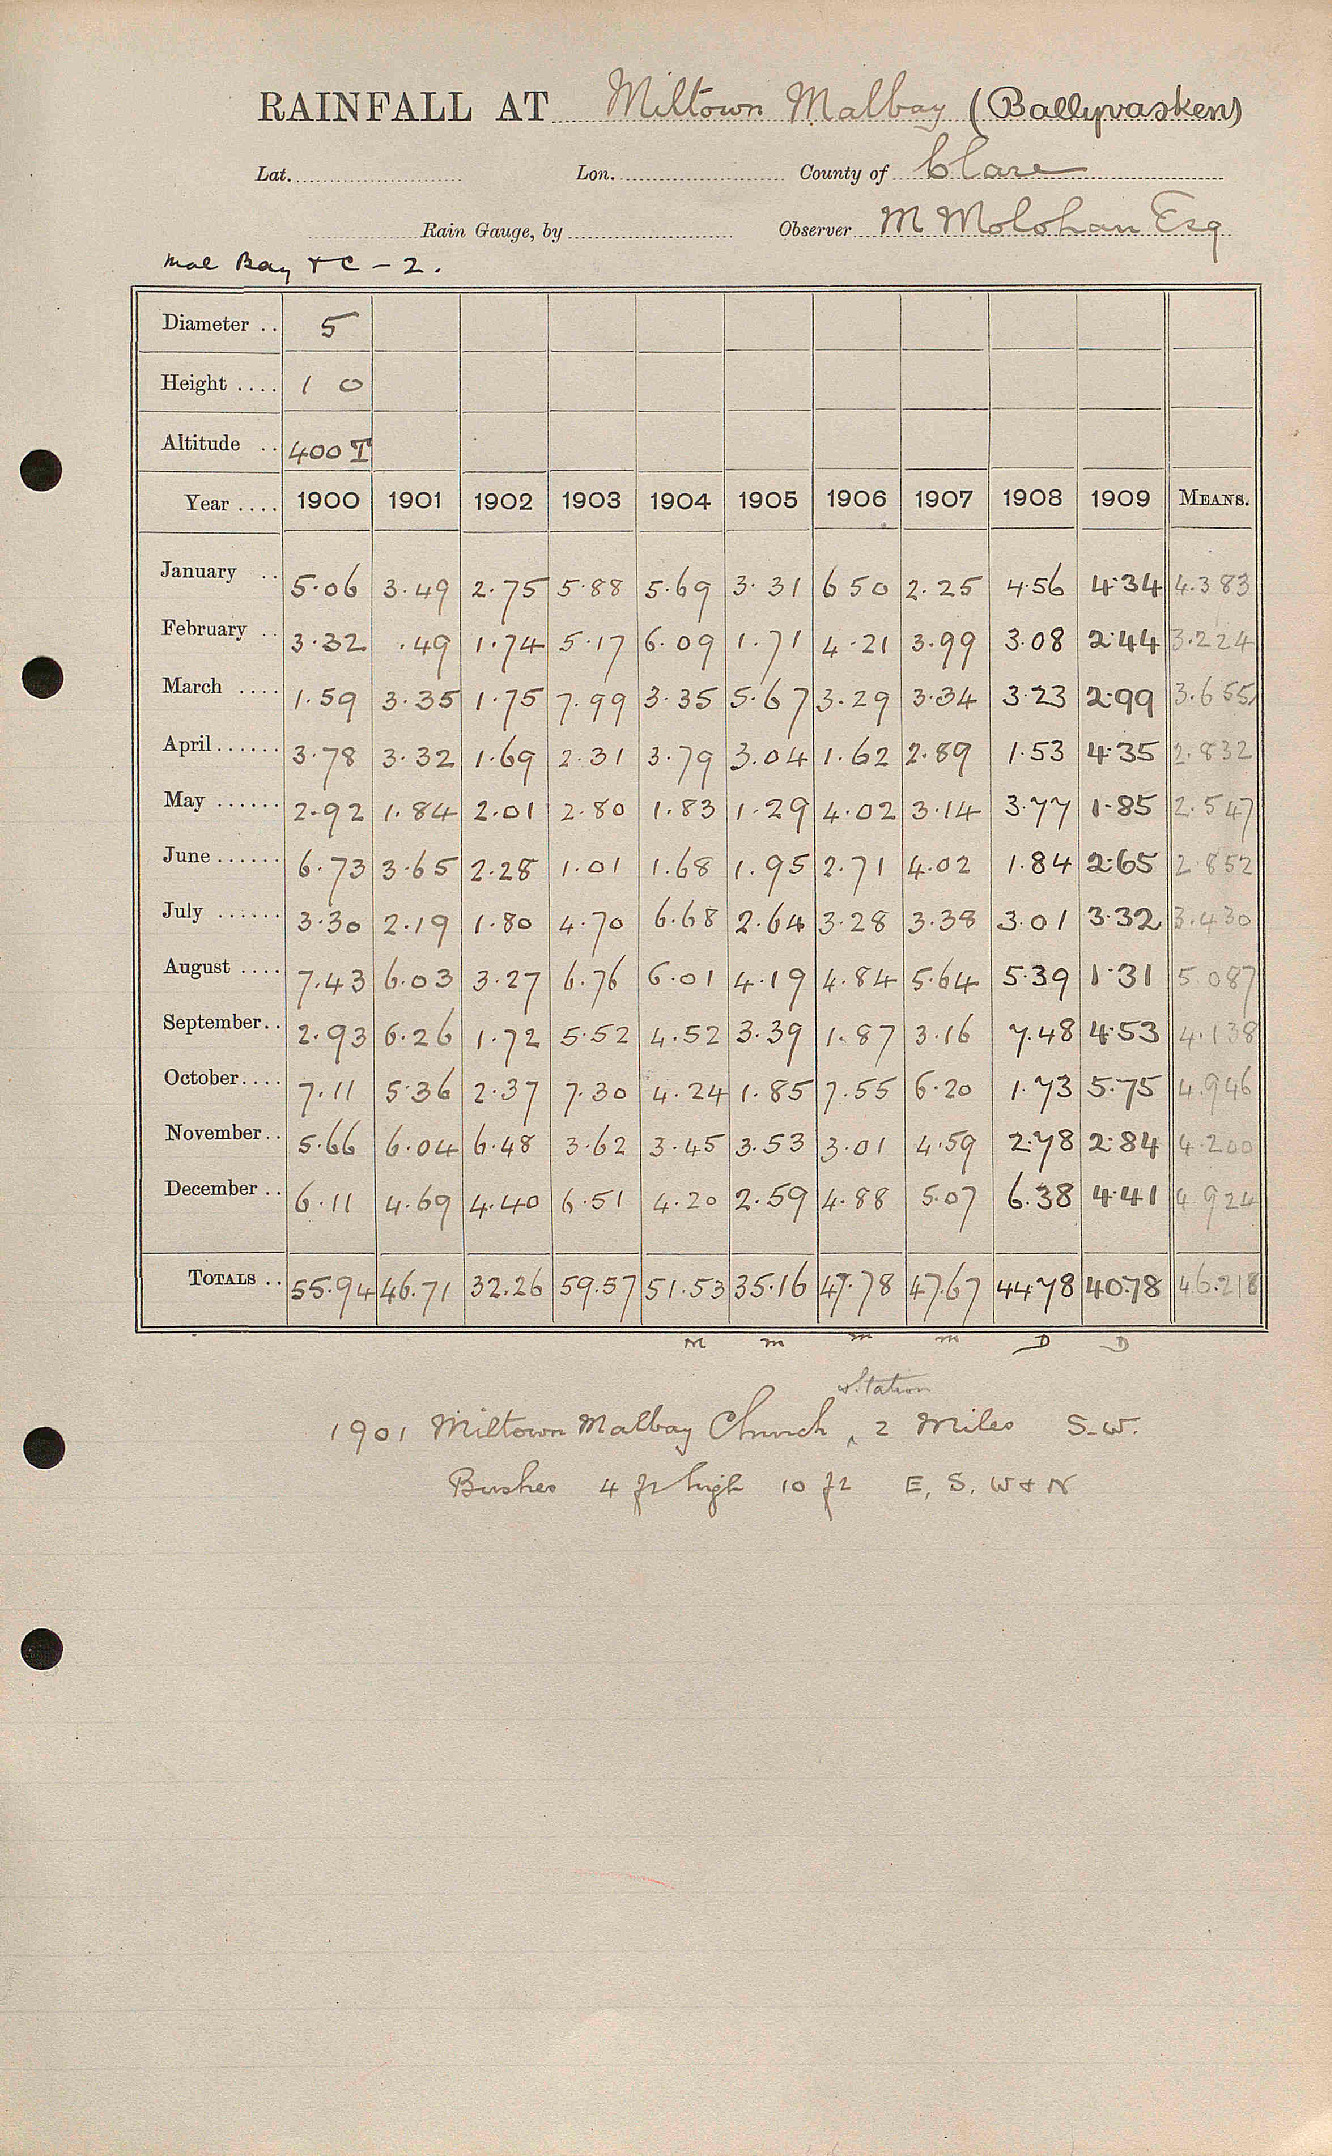 RAINFALL AT Miltown Malbay (Ballyvasken)
Lat. Lon. County of Clare
Rain Gauge, by Observer M Molohan Esq
Mal Bay & C - 2.
Diameter .. 5
Height .... 1 0
Altitude .. 400 T
Year .... 1900 1901 1902 1903 1904 1905 1906 1907 1908 1909 MEANS.
January .. 5.06 3.49 2.75 5.88 5.69 3.31 6 50 2.25 4.56 4.34 4.383
February .. 3.32 .49 1.74 5.17 6.09 1.71 4.21 3.99 3.08 2.44 3.224
March .... 1.59 3.35 1.75 7.99 3.35 5.67 3.29 3.34 3.23 2.99 3.655
April...... 3.78 3.32 1.69 2.31 3.79 3.04 1.62 2.89 1.53 4.35 2.832
May ...... 2.92 1.84 2.01 2.80 1.83 1.29 4.02 3.14 3.77 1.85 2.547
June ...... 6.73 3.65 2.28 1.01 1.68 1.95 2.71 4.02 1.84 2.65 2.852
July ...... 3.30 2.19 1.80 4.70 6.68 2.64 3.28 3.38 3.01 3.32 3.430
August .... 7.43 6.03 3.27 6.76 6.01 4.19 4.84 5.64 5.39 1.31 5.087
September.. 2.93 6.26 1.72 5.52 4.52 3.39 1.87 3.16 7.48 4.53 4.138
October.... 7.11 5.36 2.37 7.30 4.24 1.85 7.55 6.20 1.73 5.75 4.946
November.. 5.66 6.04 6.48 3.62 3.45 3.53 3.01 4.59 2.78 2.84 4.200
December .. 6.11 4.69 4.40 6.51 4.20 2.59 4.88 5.07 6.38 4.41 4.924
TOTALS .. 55.94 46.71 32.26 59.57 51.53 35.16 47.78 47.67 44.78 40.78 46.218
M m m m D D
station
1901 Miltown Malbay Church ‸ 2 Miles S.W.
Bushes 4 ft high 10 ft E, S, W & N